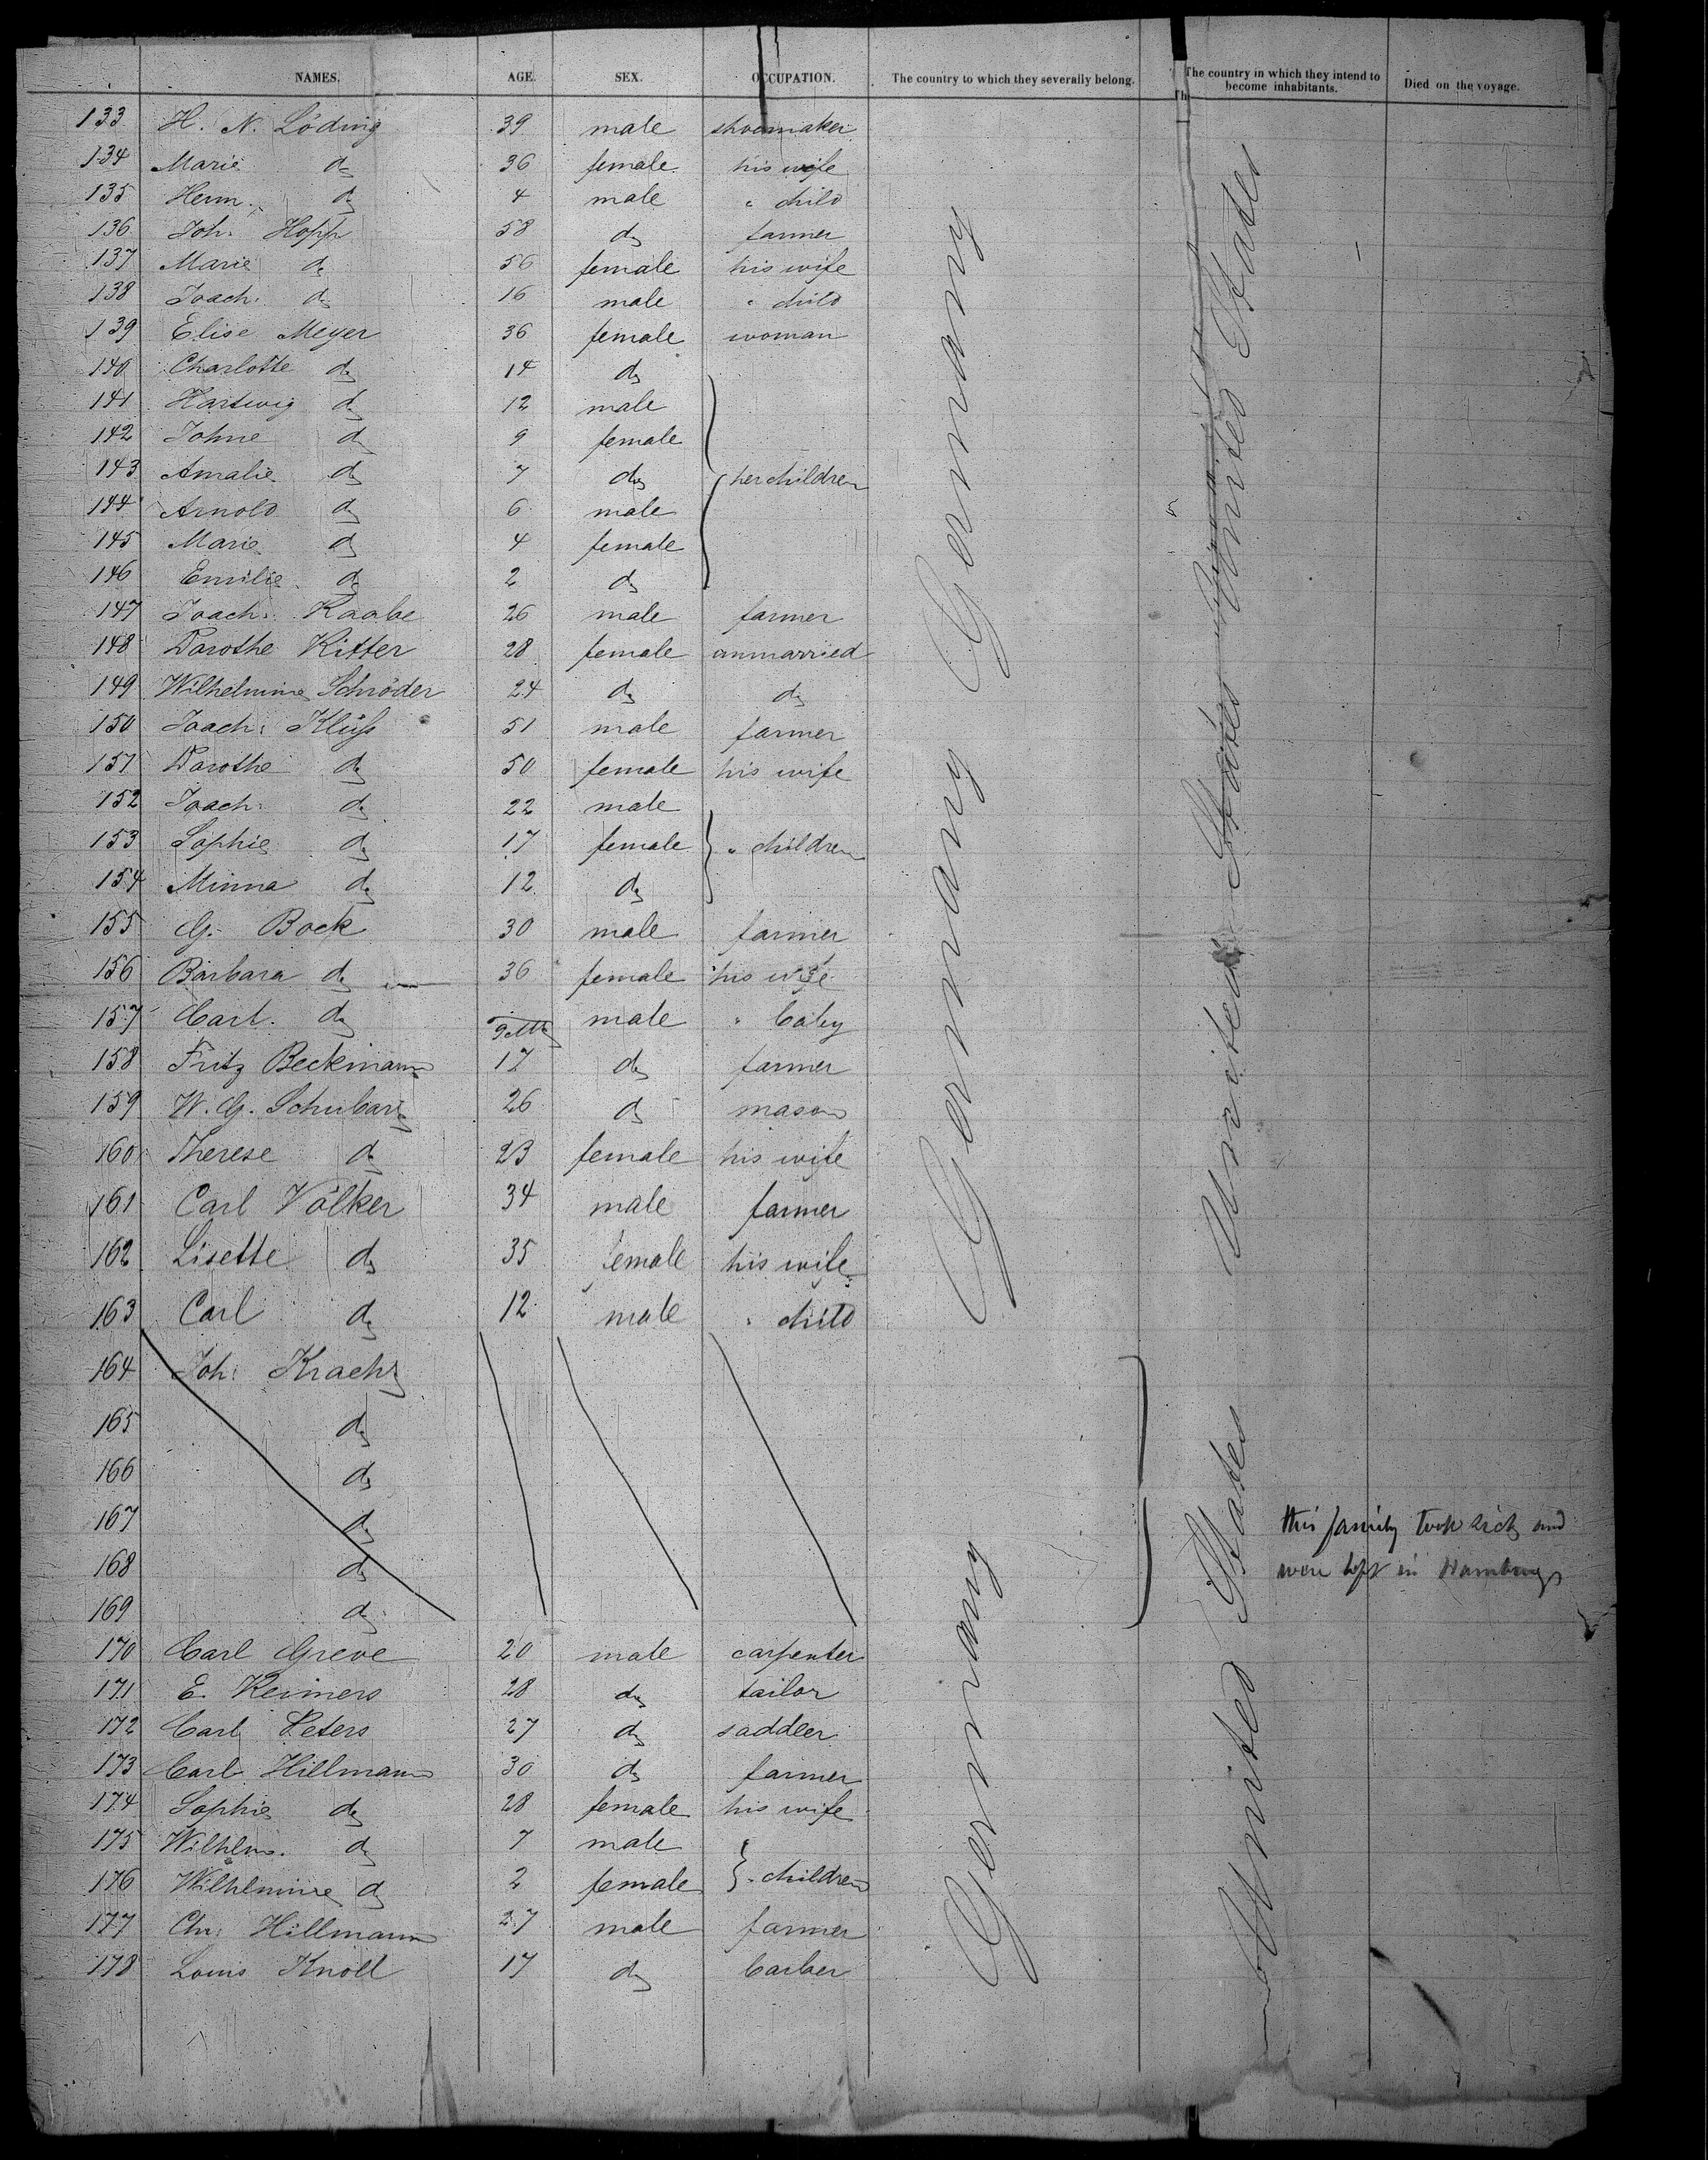 NAMES. AGE. SEX. OCCUPATION. The country to which they severally belong. The country in which they intend to become inhabitants. Died on the voyage.
133 H. N. Löding 39 male shoemaker
134 Marie do 36 female his wife
135 Herm. do 4 male " child
136 Joh. Hopp 58 do farmer
137 Marie do 56 female his wife
138 Joach: do 16 male " child
139 Elise Meyer 36 female woman
140 Charlotte do 14 do
141 Hartwig do 12 male
142 Johne do 9 female
143 Amalie do 7 do her children
144 Arnold do 6 male
145 Marie do 4 female
146 Emilie do 2 do
147 Joach: Raabe 26 male farmer
148 Dorothe Ritter 28 female unmarried
149 Wilhelmine Schröder 24 do do
150 Joach: Klüss 51 male farmer
151 Dorothe do 50 female his wife
152 Joach: do 22 male
153 Sophie do 17 female " children
154 Minna do 12 do
155 G. Bock 30 male farmer
156 Barbara do 36 female his wife
157 Carl. do 9 Mth male " baby
158 Fritz Beckmann 17 do farmer
159 W. G. Schubarz 26 do mason
160 Therese do 23 female his wife
161 Carl Völker 34 male farmer
162 Lisette do 35 female his wife
163 Carl do 12 male " child
164 Joh: do
165 do
166 do
167 do
168 do
169 do
this family took sick and
were left in Hamburg
170 Carl Greve 20 male carpenter
171 E. Reimers 28 do tailor
172 Carl Peters 27 do saddler
173 Carl Hillmann 30 do farmer
174 Sophie do 28 female his wife
175 Wilhlm. do 7 male
176 Wilhlmine do 2 female " children
177 Chr: Hillmann 27 male farmer
178 Louis Knoll 17 do barber
Germany Germany Germany
United States United States United States